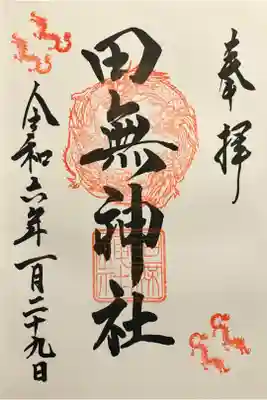 奉拝
田無神社
令和六年一月二十九日